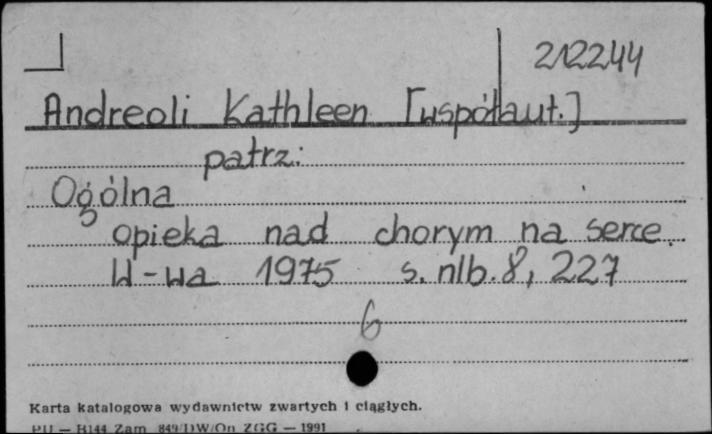 212244
Andreoli Kathleen [współaut.]
patrz:
Ogólna
opieka nad chorym na serce.
W-wa 1975 s. nlb. 8, 227
6
Karta katalogowa wydawnictw zwartych i ciągłych.
PU — H144 Zam 849/DW/On ZGG — 1991